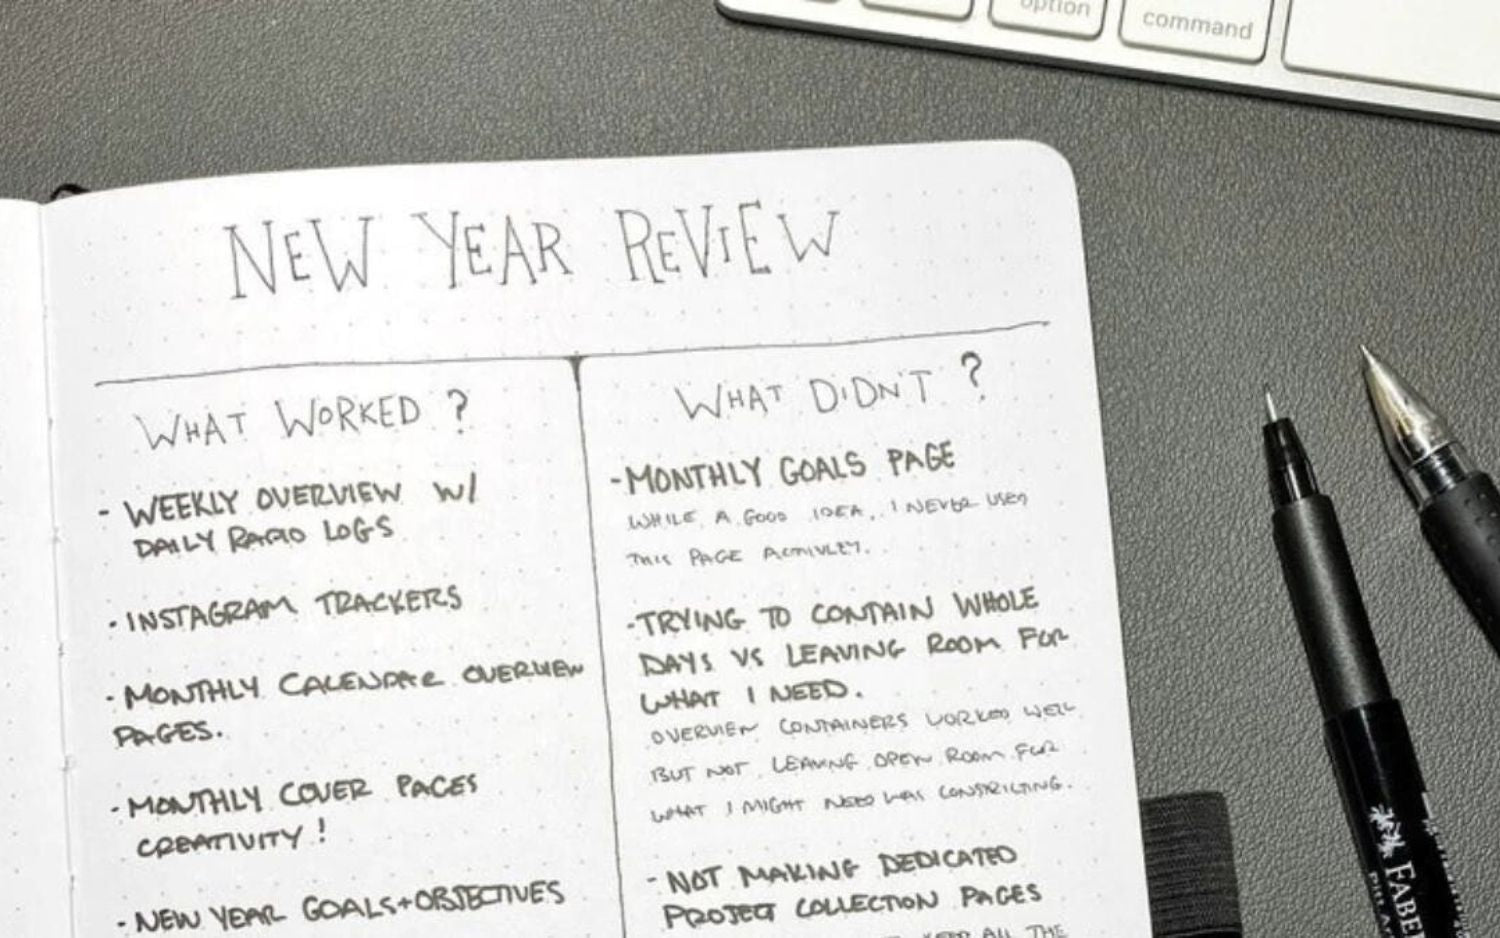 option
command
NEW YEAR REVIEW
WHAT WORKED?
- WEEKLY OVERVIEW W/
DAILY RAPID LOGS
- INSTAGRAM TRACKERS
- MONTHLY CALENDAR OVERVIEW
PAGES.
- MONTHLY COVER PAGES
CREATIVITY!
- NEW YEAR GOALS+OBJECTIVES
WHAT DIDN'T?
- MONTHLY GOALS PAGE
WHILE A GOOD IDEA, I NEVER USED
THIS PAGE ACTIVLEY.
- TRYING TO CONTAIN WHOLE
DAYS VS LEAVING ROOM FOR
WHAT I NEED.
OVERVIEW CONTAINERS WORKED WELL
BUT NOT LEAVING OPEN ROOM FOR
WHAT I MIGHT NEED WAS CONSTRICTING.
- NOT MAKING DEDICATED
PROJECT COLLECTION PAGES
KEEP ALL THE
FABE